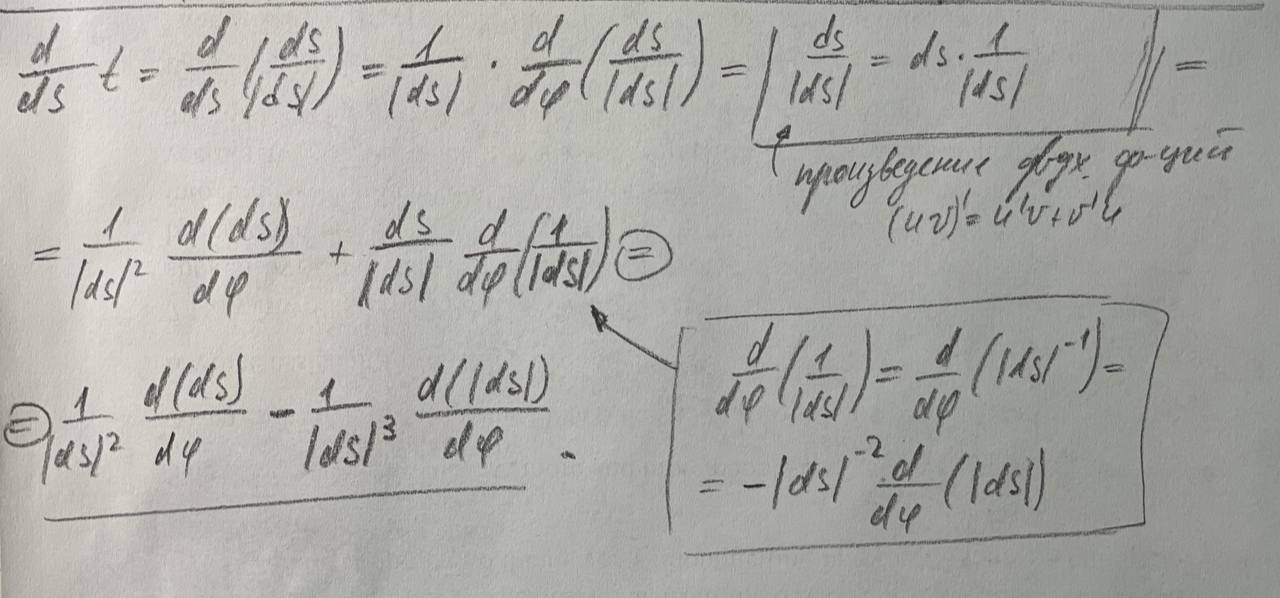 d/ds t = d/ds (ds/|ds|) = 1/|ds| · d/dφ (ds/|ds|) = | ds/|ds| = ds · 1/|ds| || =
произведение двух ф-ций
(uv)' = u'v + v'u
= 1/|ds|² d(ds)/dφ + ds/|ds| d/dφ (1/|ds|) =
d/dφ (1/|ds|) = d/dφ (|ds|⁻¹) =
= -|ds|⁻² d/dφ (|ds|)
= 1/|ds|² d(ds)/dφ - 1/|ds|³ d(|ds|)/dφ .